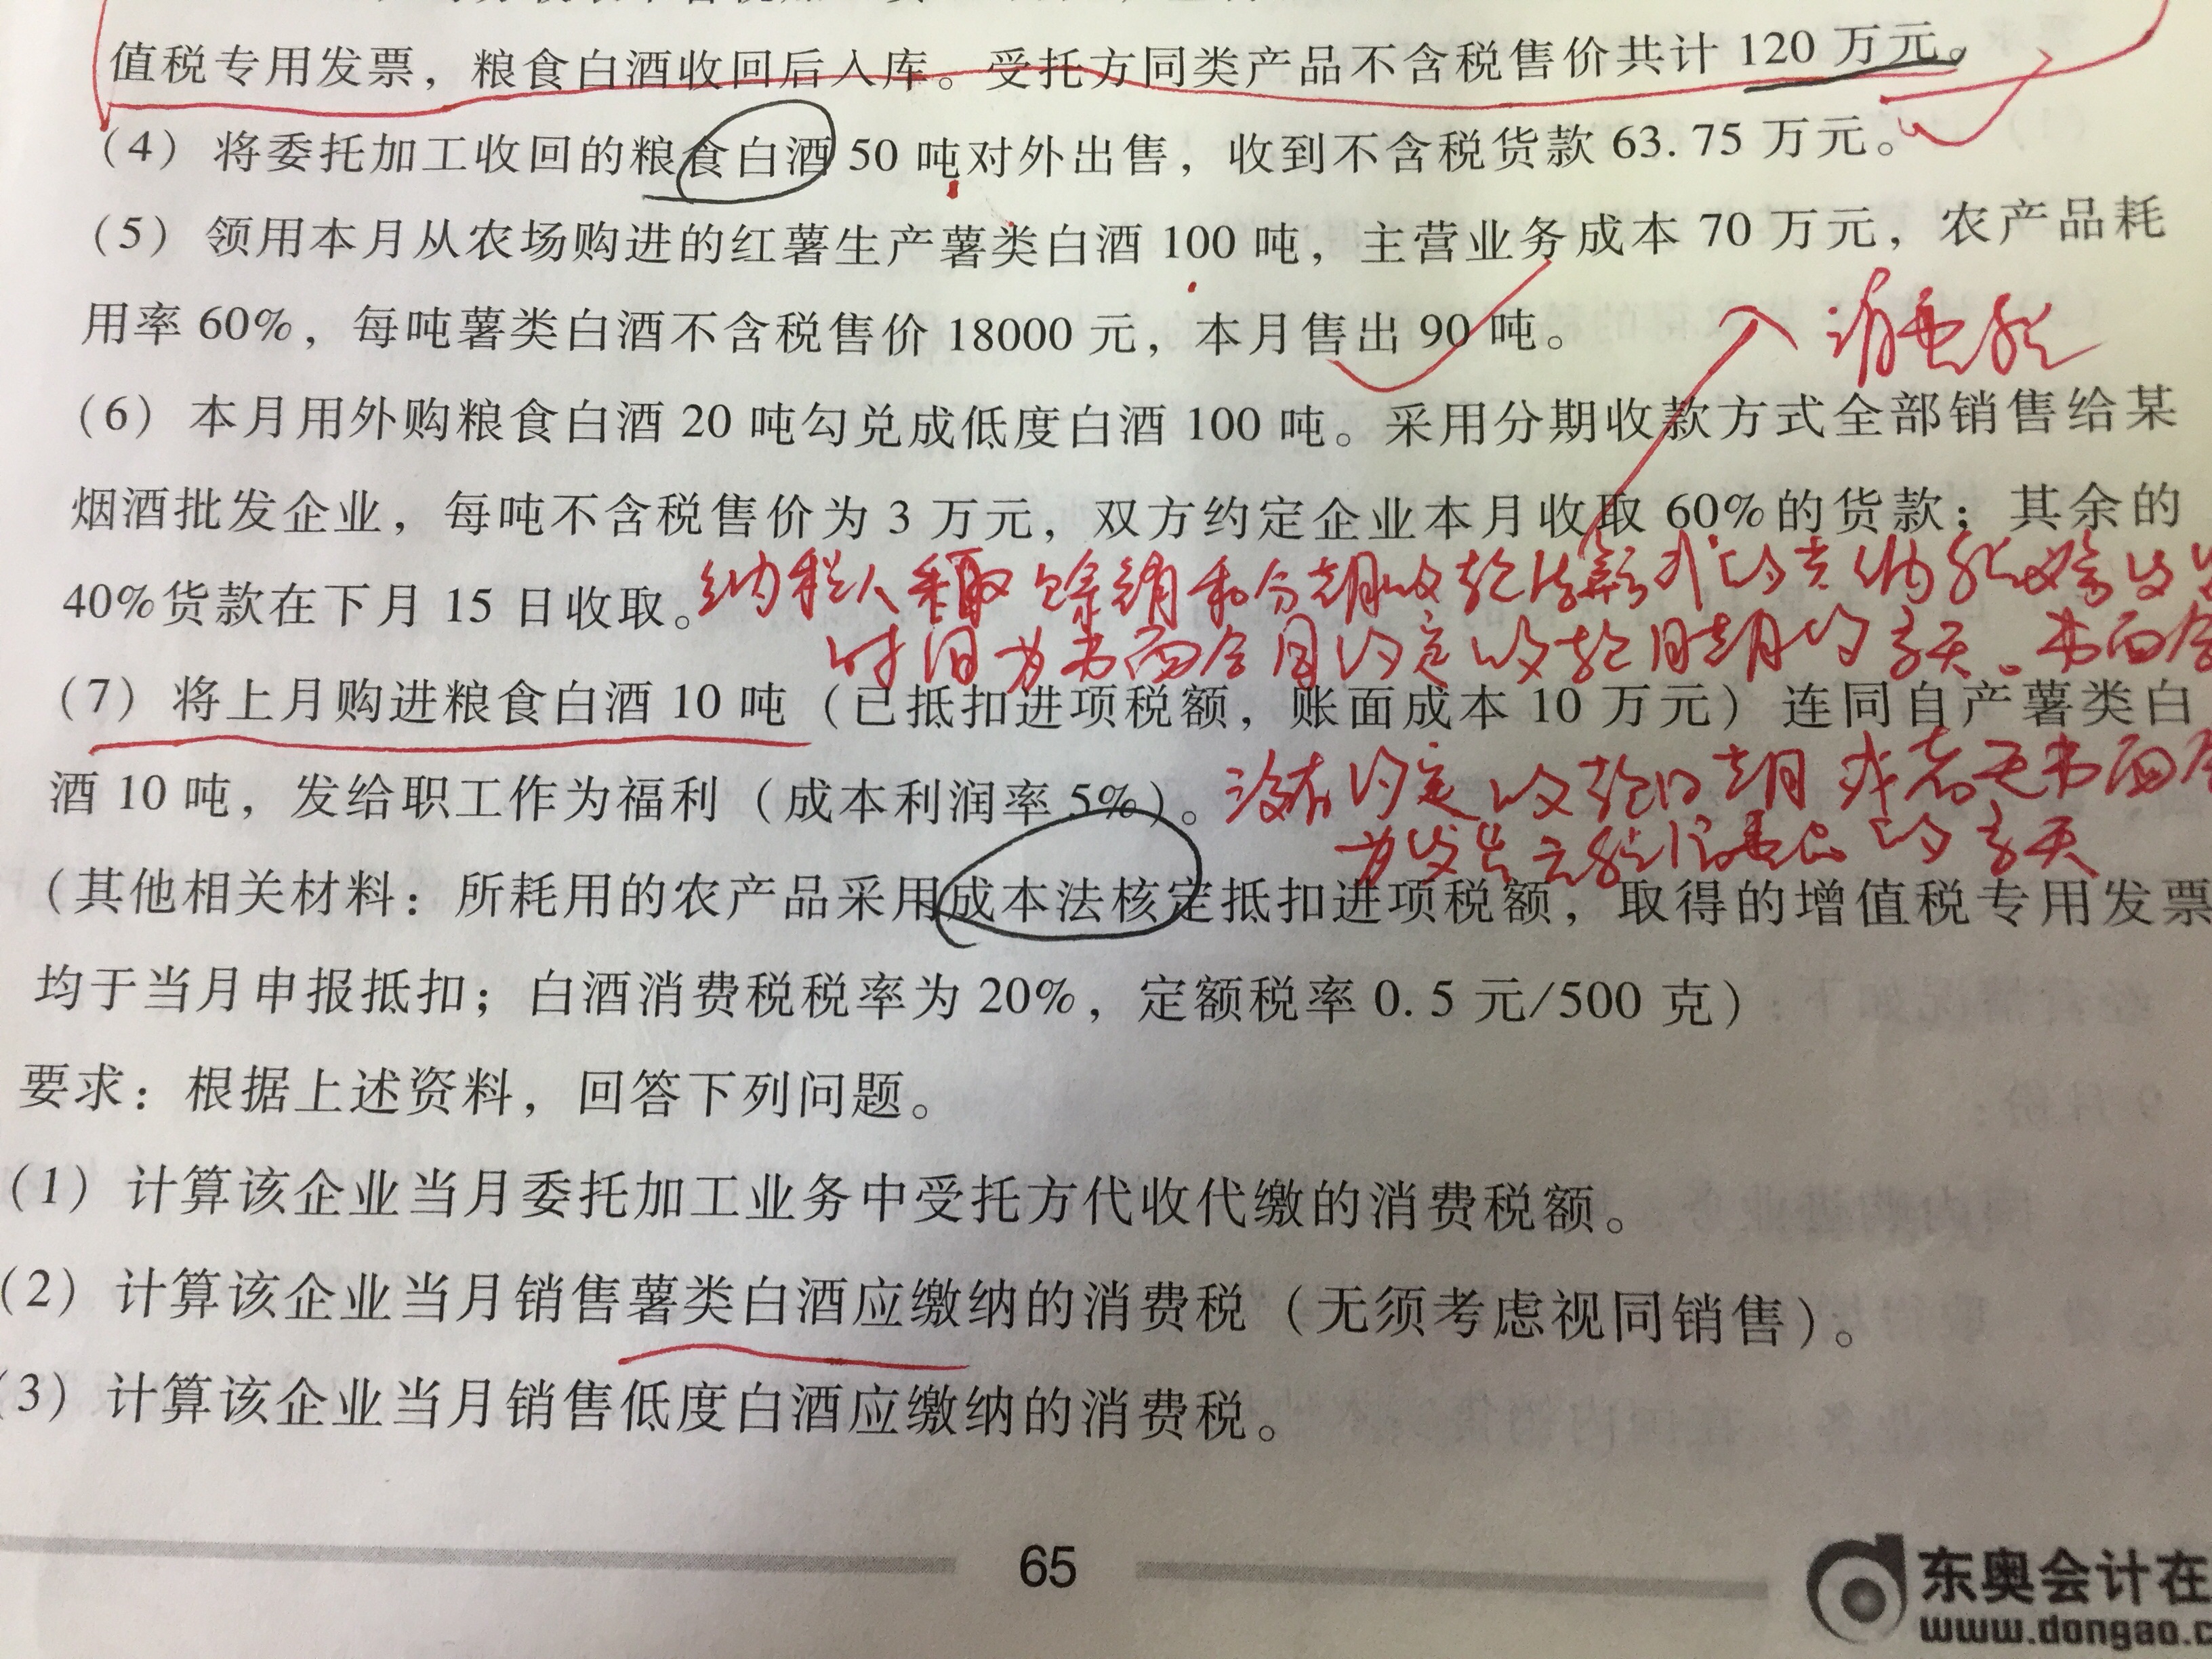 值税专用发票，粮食白酒收回后入库。受托方同类产品不含税售价共计 120 万元。
(4) 将委托加工收回的粮食白酒 50 吨对外出售，收到不含税货款 63.75 万元。
(5) 领用本月从农场购进的红薯生产薯类白酒 100 吨，主营业务成本 70 万元，农产品耗
用率 60%，每吨薯类白酒不含税售价 18000 元，本月售出 90 吨。
消费税
(6) 本月用外购粮食白酒 20 吨勾兑成低度白酒 100 吨。采用分期收款方式全部销售给某
烟酒批发企业，每吨不含税售价为 3 万元，双方约定企业本月收取 60%的货款；其余的
40%货款在下月 15 日收取。
纳税人采取赊销和分期收款结算方式的其纳税义务发生
时间为书面合同约定收款日期的当天。书面合
(7) 将上月购进粮食白酒 10 吨（已抵扣进项税额，账面成本 10 万元）连同自产薯类白
酒 10 吨，发给职工作为福利（成本利润率 5%）。
没有约定收款日期或者无书面合
为发出应税消费品的当天
（其他相关材料：所耗用的农产品采用成本法核定抵扣进项税额，取得的增值税专用发票
均于当月申报抵扣；白酒消费税税率为 20%，定额税率 0.5 元/500 克）
要求：根据上述资料，回答下列问题。
(1) 计算该企业当月委托加工业务中受托方代收代缴的消费税额。
(2) 计算该企业当月销售薯类白酒应缴纳的消费税（无须考虑视同销售）。
(3) 计算该企业当月销售低度白酒应缴纳的消费税。
65
东奥会计在
www.dongao.c